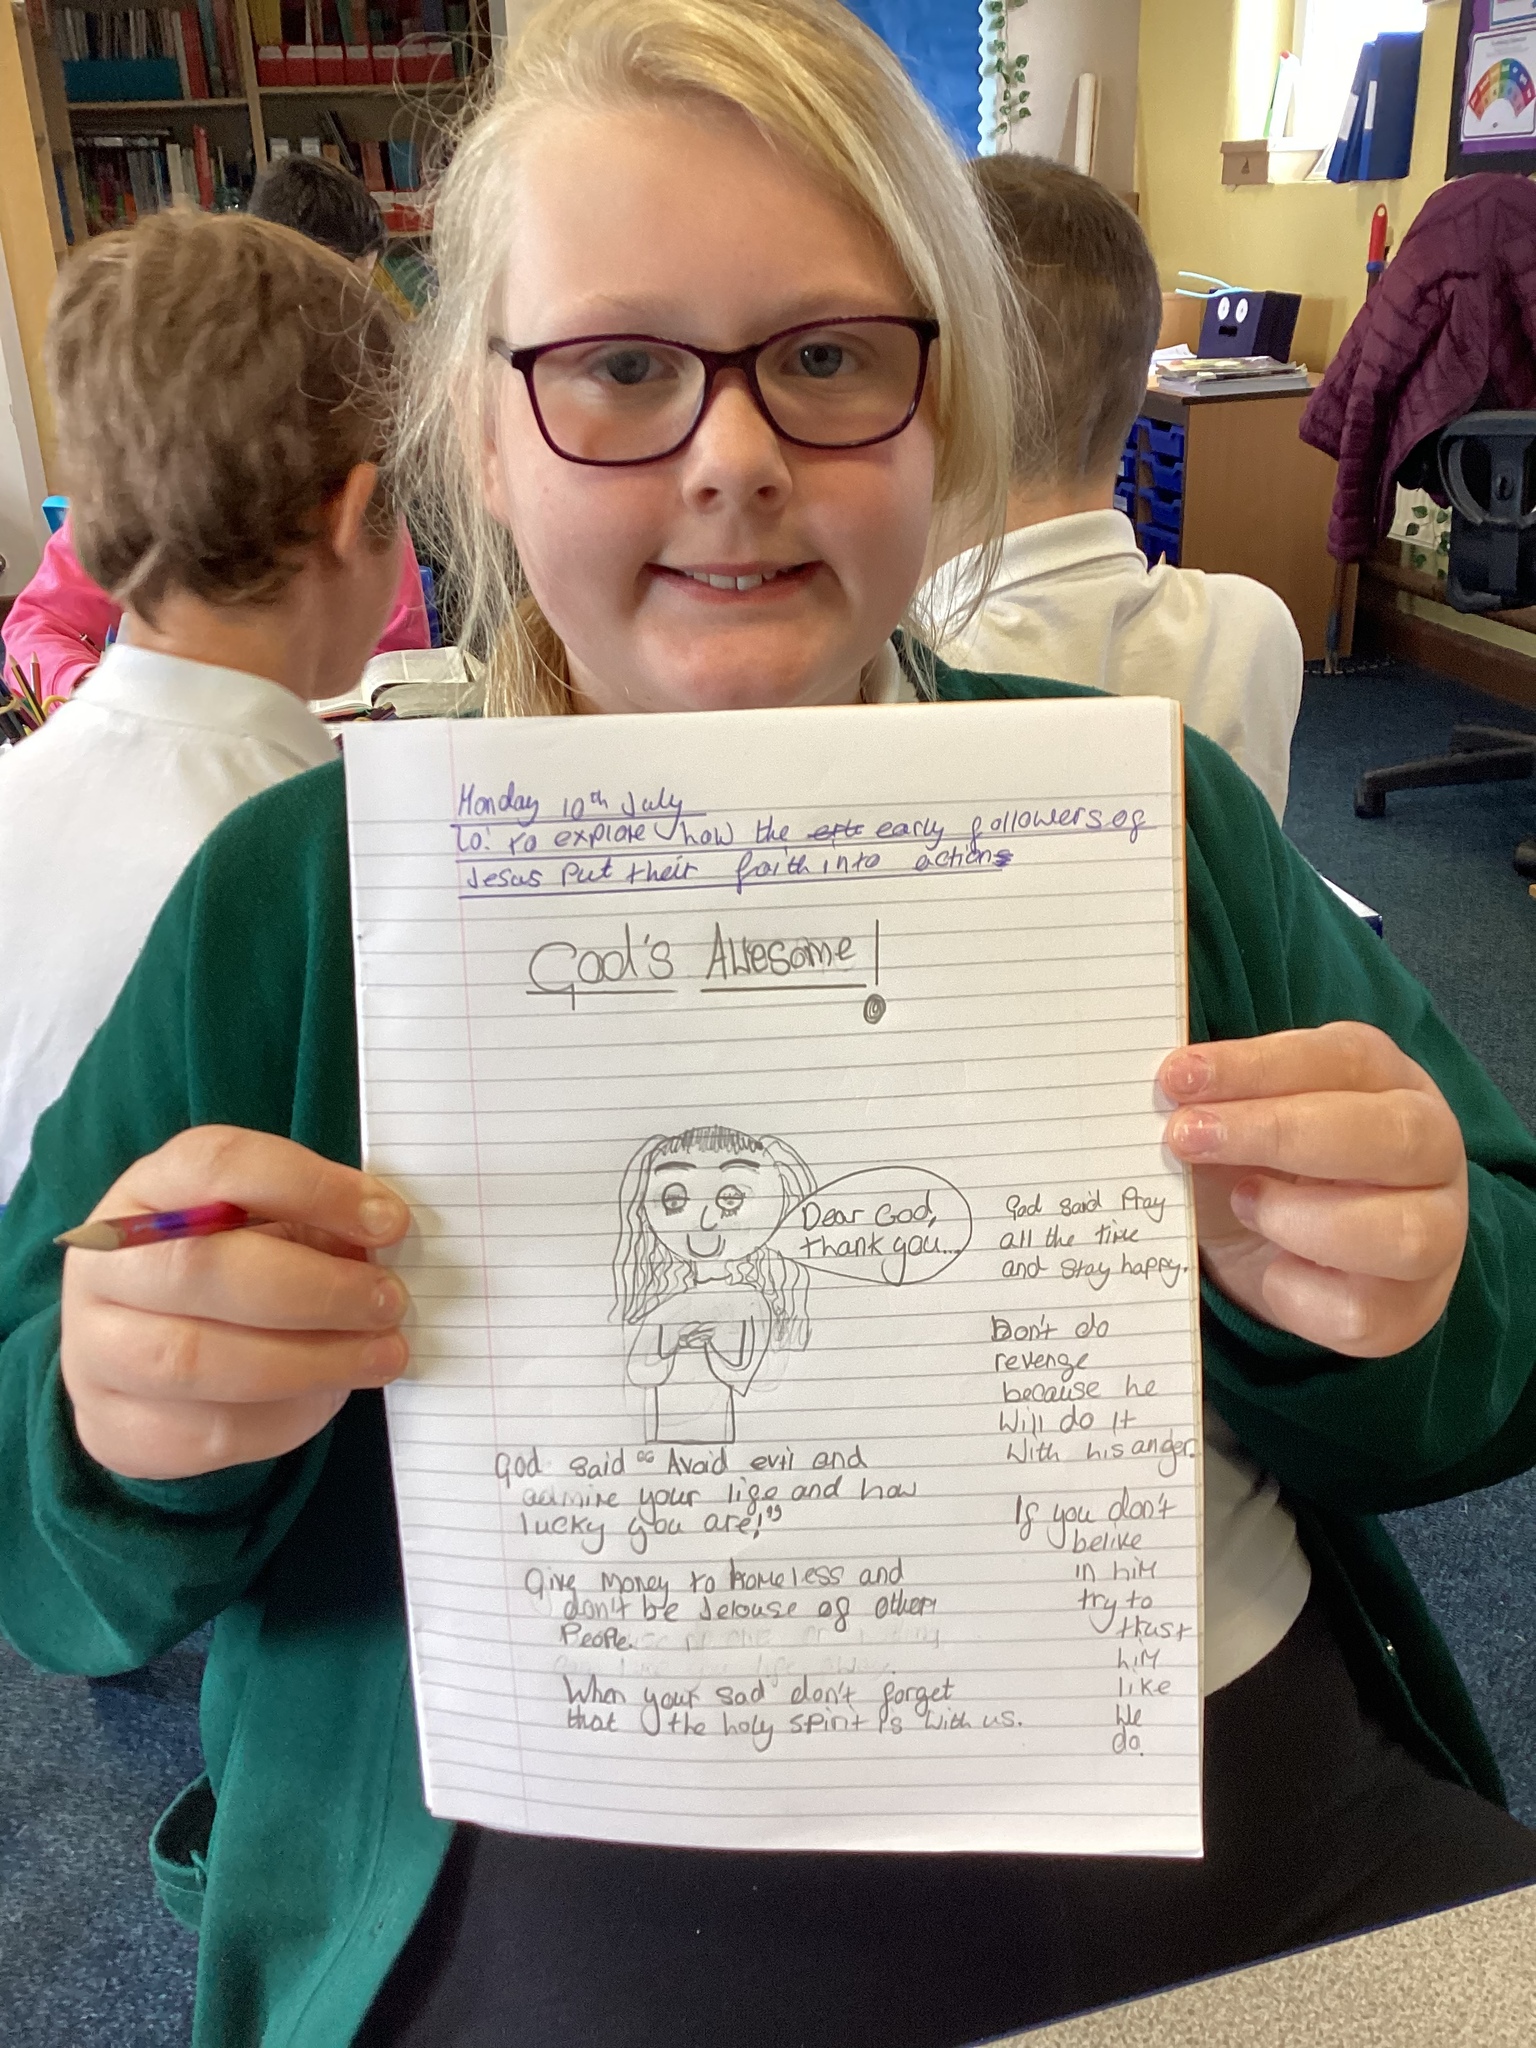 Monday 10th July
Lo: To explore how the early followers of
Jesus Put their faith into actions
God's Awesome!
Dear God,
thank you...
God said Pray
all the time
and stay happy.
Don't do
revenge
because he
will do it
with his anger.
God said "Avoid evil and
admire your life and how
lucky you are!"
Give money to homeless and
don't be Jelouse of other
People.
When your sad don't forget
that the holy spirit is with us.
If you don't
belive
in him
try to
trust
him
like
we
do.